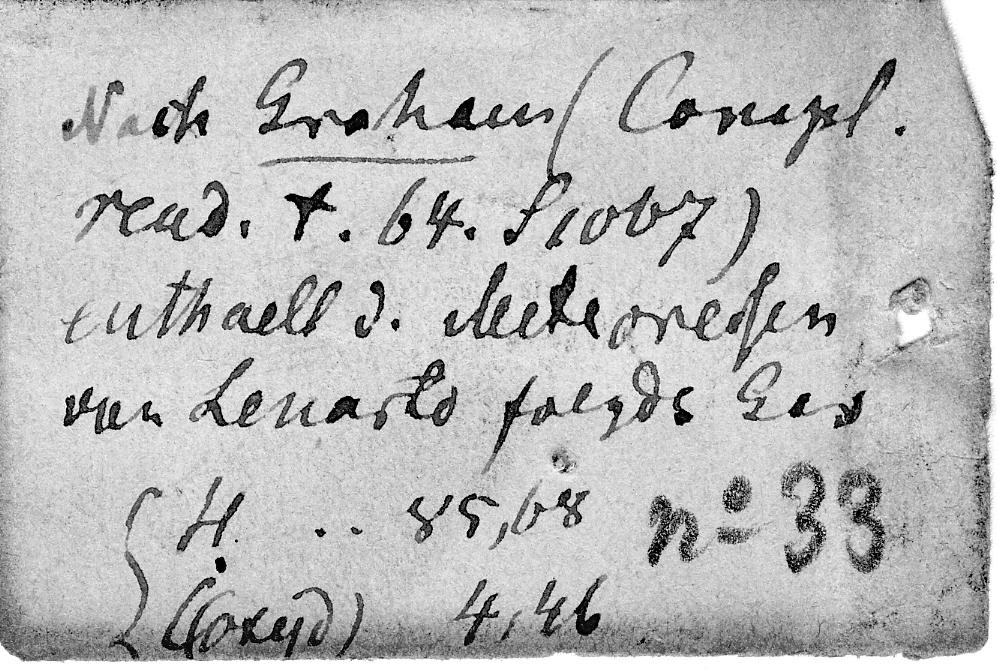 Nach Graham (Compt.
rend. t. 64. S 1067)
enthaelt d. Meteoreisen
von Lenarto folgds Gas
H. .. 85,68 nº 33
(Coxyd) 4,46